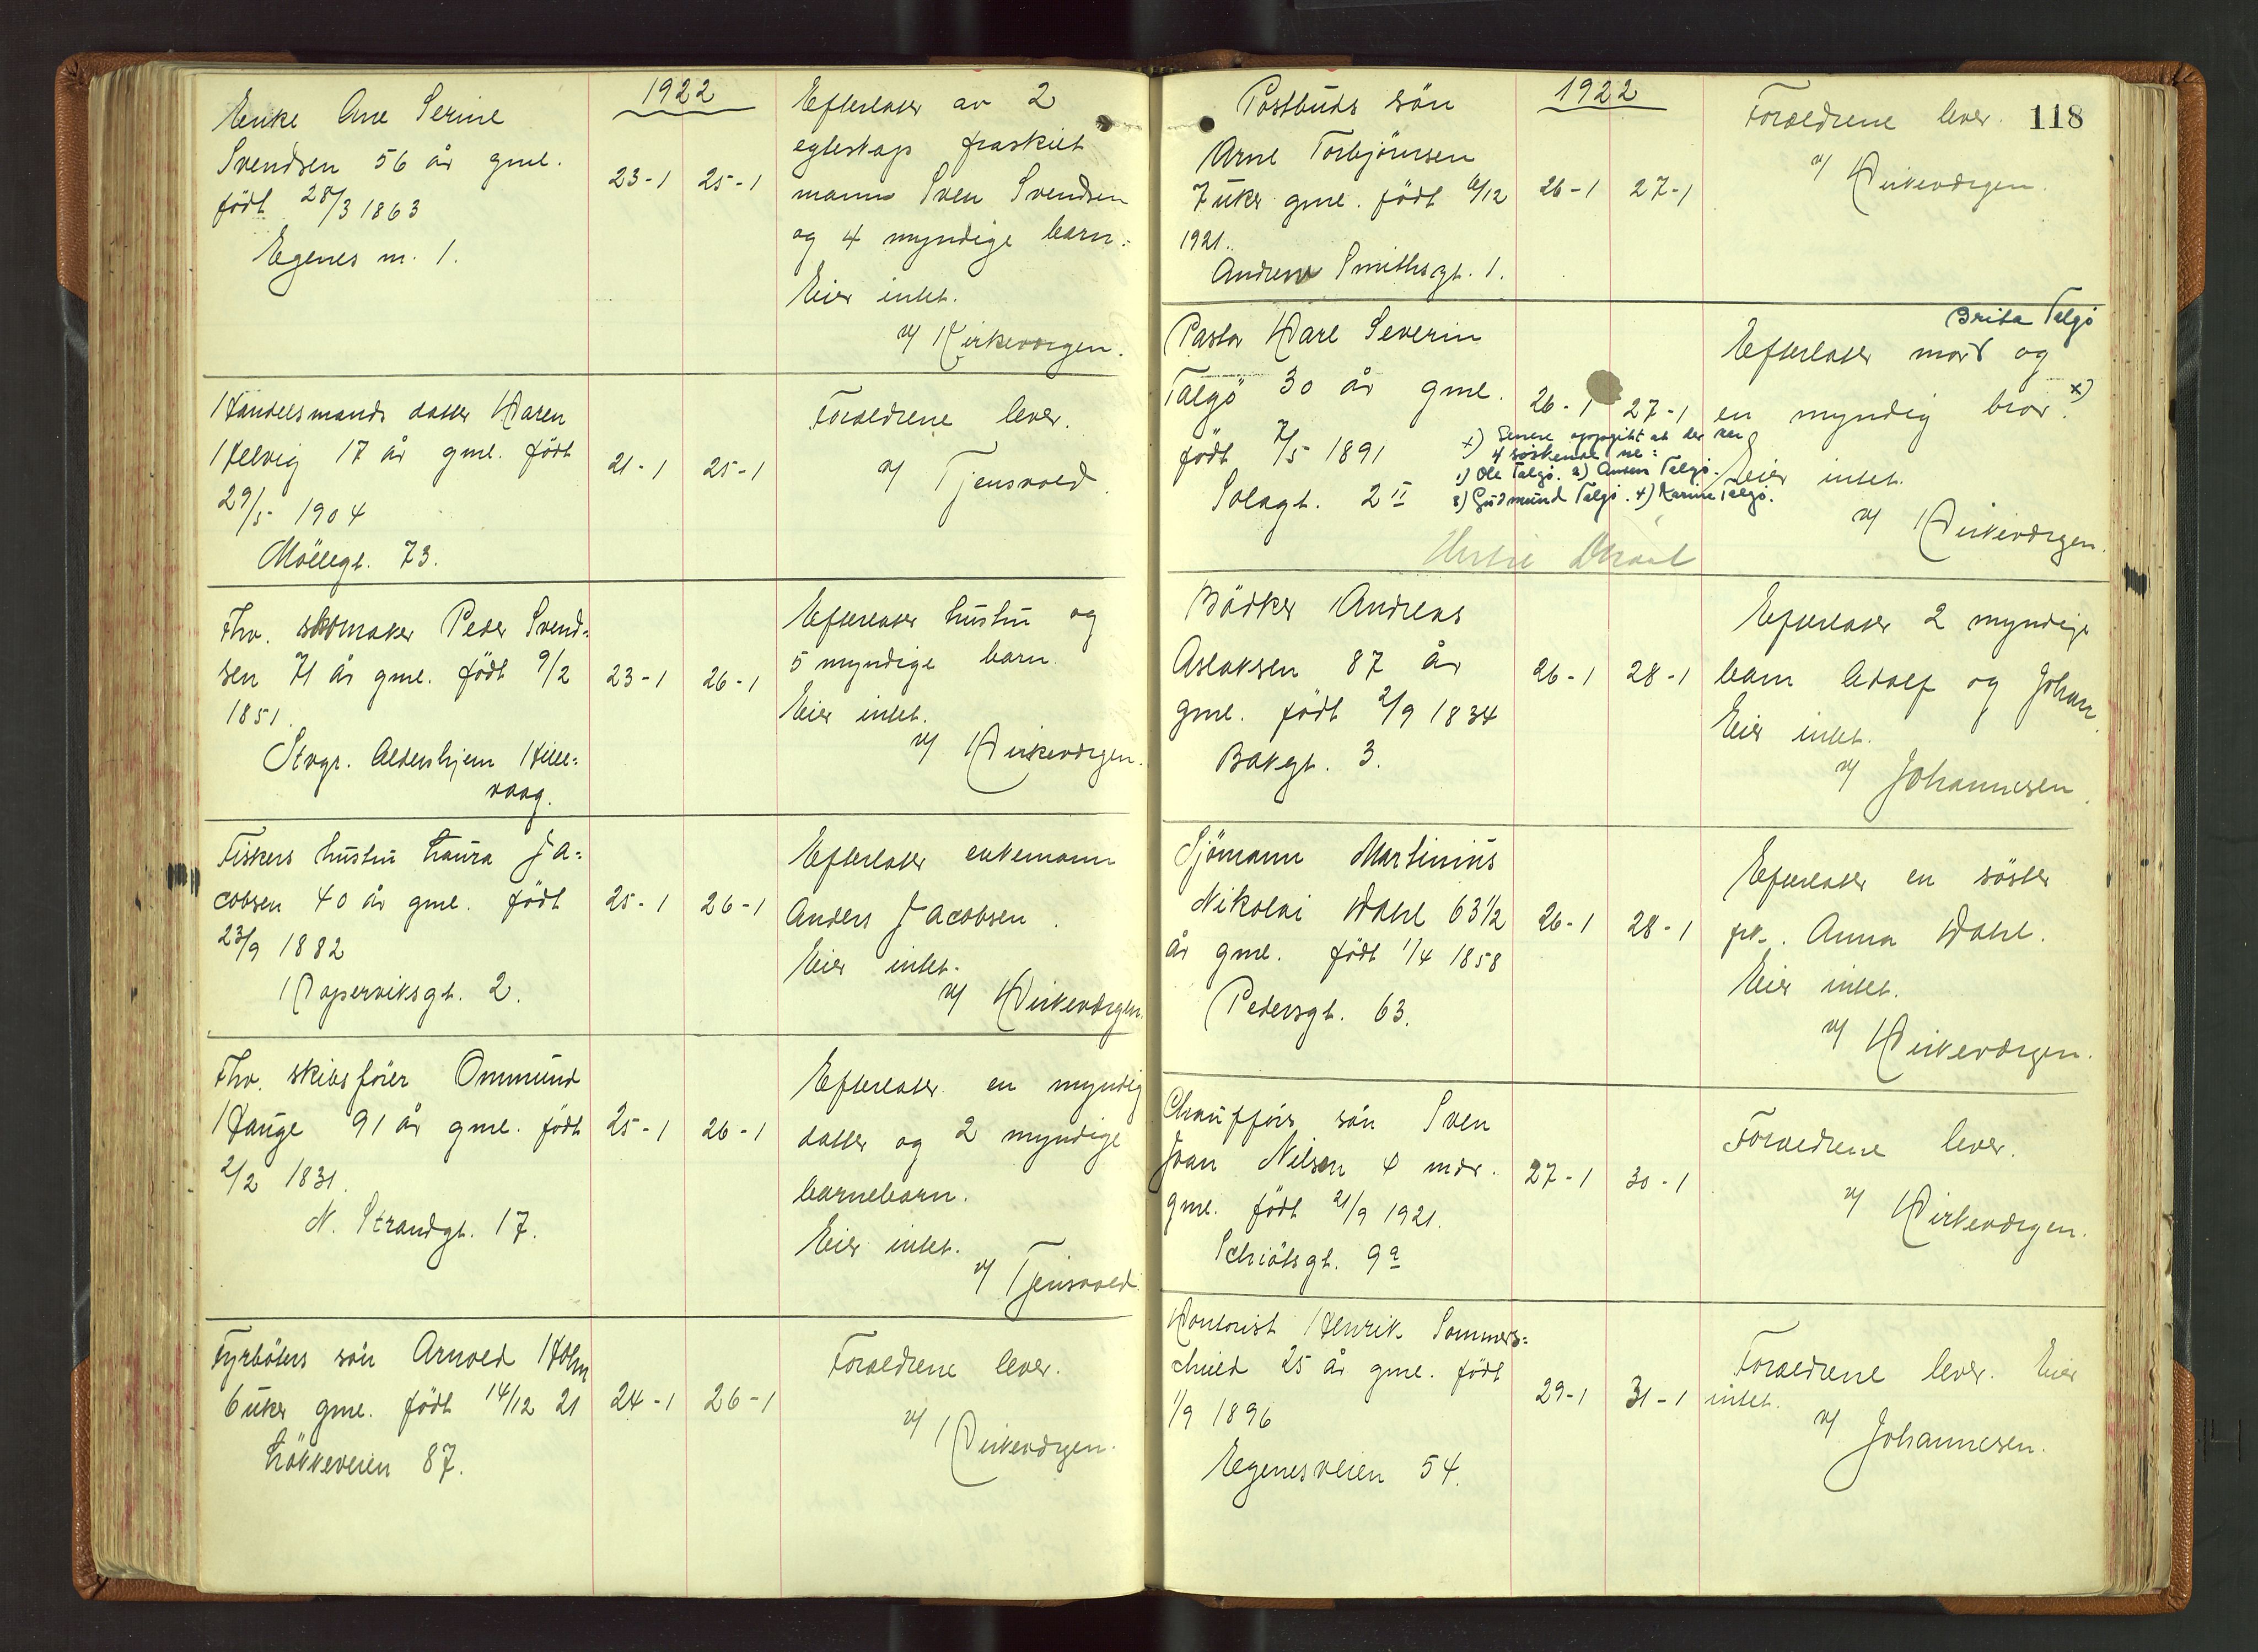 1922
Enke Ane Serine
Svendsen 56 år gml.
født 28/3 1863
Egenes m. 1.
23-1 25-1
Efterlater av 2
egteskap fraskilt
mann Sven Svendsen
og 4 myndige barn.
Eier intet.
v/ Kirkevergen.
Handelsmands datter Karen
Helvig 17 år gml. født
29/5 1904
Möllegt. 73.
21-1 25-1
Foreldrene lever.
v/ Tjensvold.
Fhv. skomaker Peder Svend=
sen 71 år gml. födt 9/2
1851.
Stvgr. Aldershjem Hille=
vaag.
23-1 26-1
Efterlater hustru og
5 myndige barn.
Eier intet.
v/ Kirkevergen.
Fiskers hustru Laura Ja=
cobsen 40 år gml. födt
23/9 1882
Kopperviksgt. 2.
25-1 26-1
Efterlater enkemann
Anders Jacobsen.
Eier intet.
v/ Kirkevergen.
Fhv. skibsförer Ommund
Hauge 91 år gml. födt
2/2 1831.
N. Strandgt. 17.
25-1 26-1
Efterlater en myndig
datter og 2 myndige
barnebarn.
Eier intet.
v/ Tjensvold.
Fyrböters sön Arnold Holm
6 uker gml. födt 14/12 21
Lökkeveien 87.
24-1 26-1
Foreldrene lever.
v/ Kirkevergen.
1922
118
Postbuds sön
Arne Torbjörnsen
7 uker gml. födt 6/12
1921.
Andrew Smithsgt. 1.
26-1 27-1
Foreldrene lever.
v/ Kirkevergen.
Pastor Karl Severin
Talgö 30 år gml.
födt 7/5 1891
Solagt. 2 II
26-1 27-1
Brita Talgö
Efterlater mor og
en myndig bror. x)
Eier intet.
v/ Kirkevergen.
x) Senere oppgitt at der er
4 söskende nl:
1) Ole Talgö. 2) Talgö.
3) Gudmund Talgö. 4) Karine Talgö.
Bödker Andreas
Aslaksen 87 år
gml. födt 2/9 1834
Bakgt. 3.
26-1 28-1
Efterlater 2 myndige
barn Adolf og Johan
Eier intet.
v/ Johannesen.
Sjömann Martinius
Nikolai Dahl 63 1/2
år gml. födt 1/4 1858
Pedersgt. 63.
26-1 28-1
Efterlater en söster
frk. Anna Dahl.
Eier intet.
v/ Kirkevergen.
Chaufförs sön Sven
Ivan Nilsen 4 mdr.
gml. födt 21/9 1921.
Schiötsgt. 9a
27-1 30-1
Foreldrene lever.
v/ Kirkevergen.
Kontorist Henrik Sommers=
child 25 år gml. födt
1/9 1896
Egenesveien 54.
29-1 31-1
Foreldrene lever. Eier
intet.
v/ Johannesen.